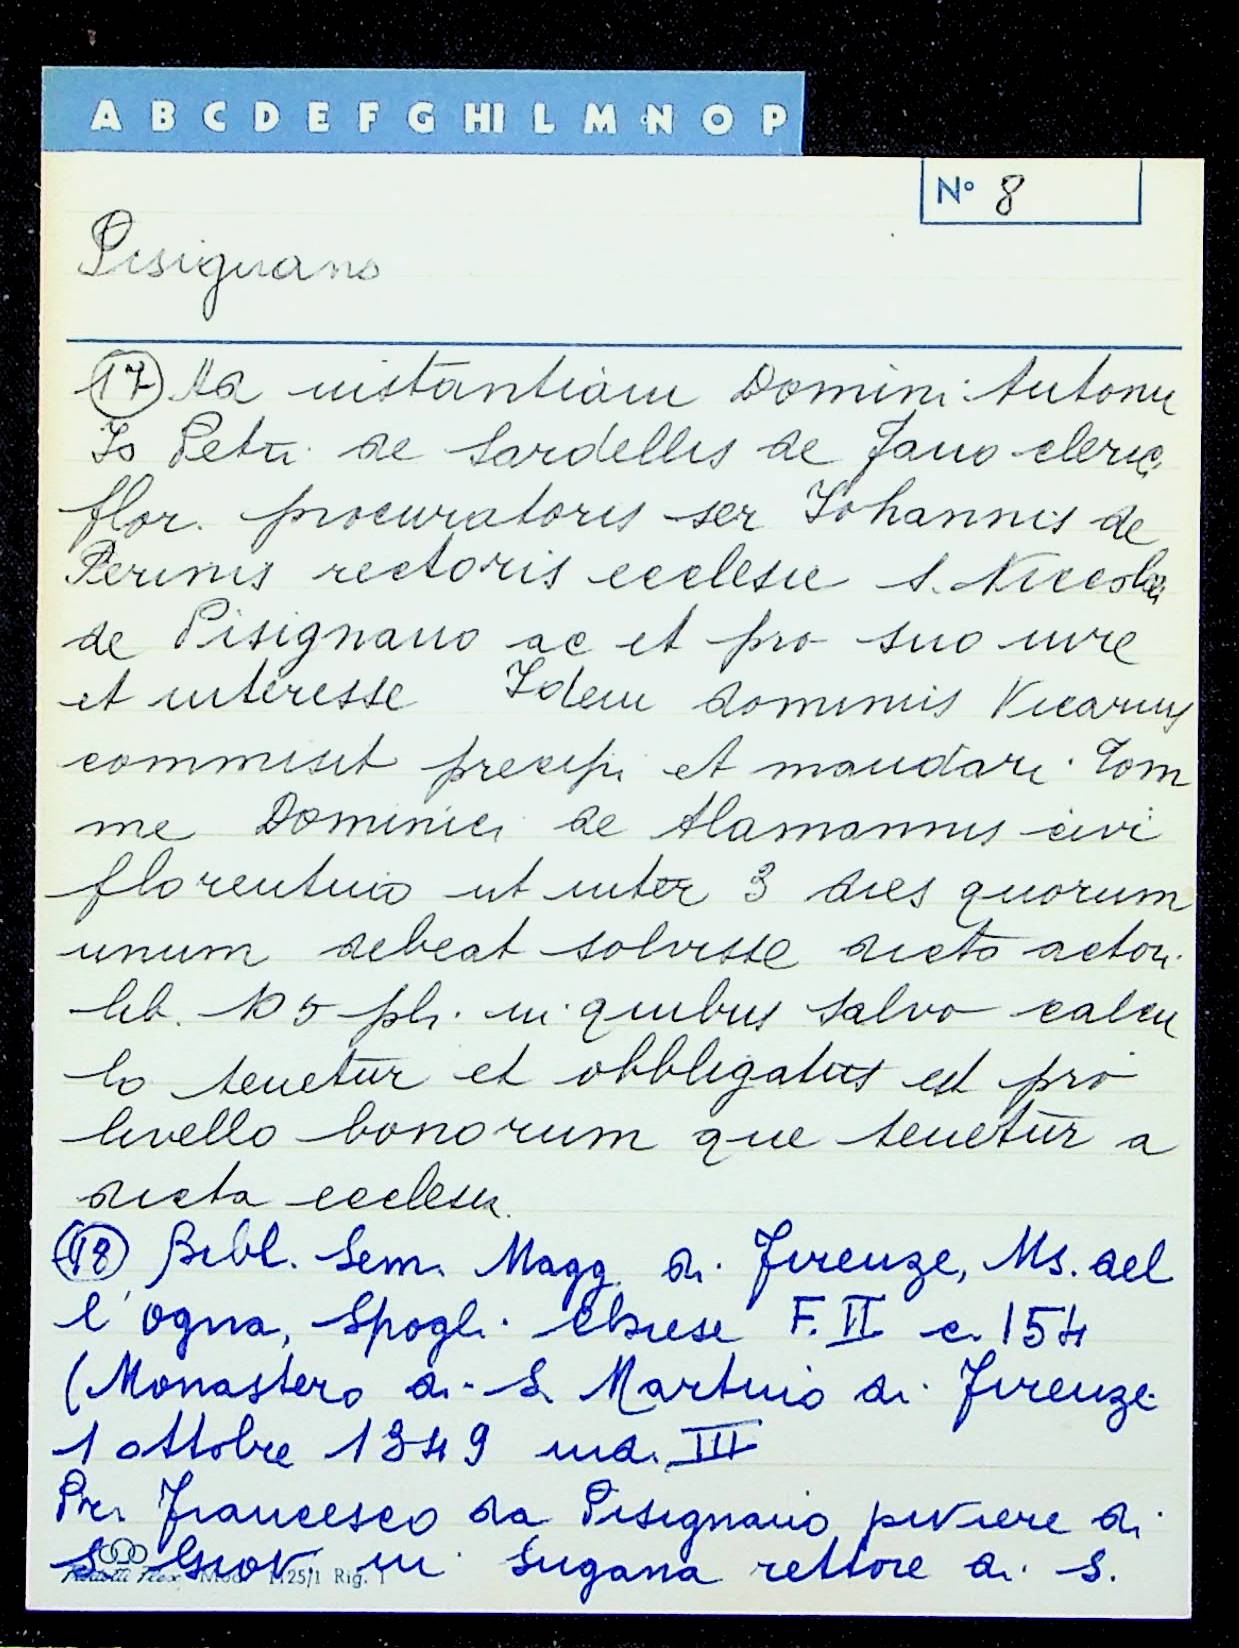 A B C D E F G HI L M N O P
N° 8
Pisignano
(17) Ad instantiam Domini Antonii
Petri de Sardellis de Fano clerici
flor. procuratoris ser Iohannis de
Perinis rectoris ecclesie S. Niccolai
de Pisignano ac et pro suo iure
et interesse Idem dominus Vicarius
commisit precipi et mandari Tom
me Dominici de Alamannis civi
florentino ut inter 3 dies quorum
unum debeat solvisse dicto actori
lib. 105 pli. in quibus salvo calcu
lo tenetur et obbligatus est pro
livello bonorum que tenetur a
dicta ecclesia.
(18) Bibl. Sem. Magg. di Firenze, Ms. del
l'Ogna, Spogli Chiese F. II c. 154
(Monastero di S. Martino di Firenze
1 ottobre 1349 ind. III
Pre. Francesco da Pisignano piviere di
S. Giov. in Sugana rettore di S.
Mod. 1125/1 Rig. 1